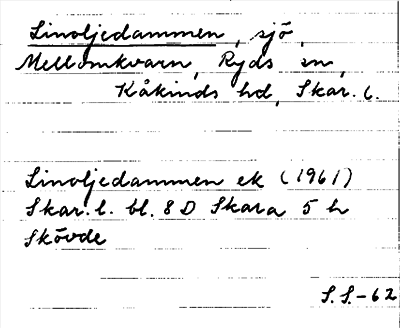 Linoljedammen, sjö,
Mellomkvarn, Ryds sn,
Kåkinds hd, Skar. l.
Linoljedammen ek (1961)
Skar. l. bl. 8 D Skara 5 h
Skövde
S.S.-62